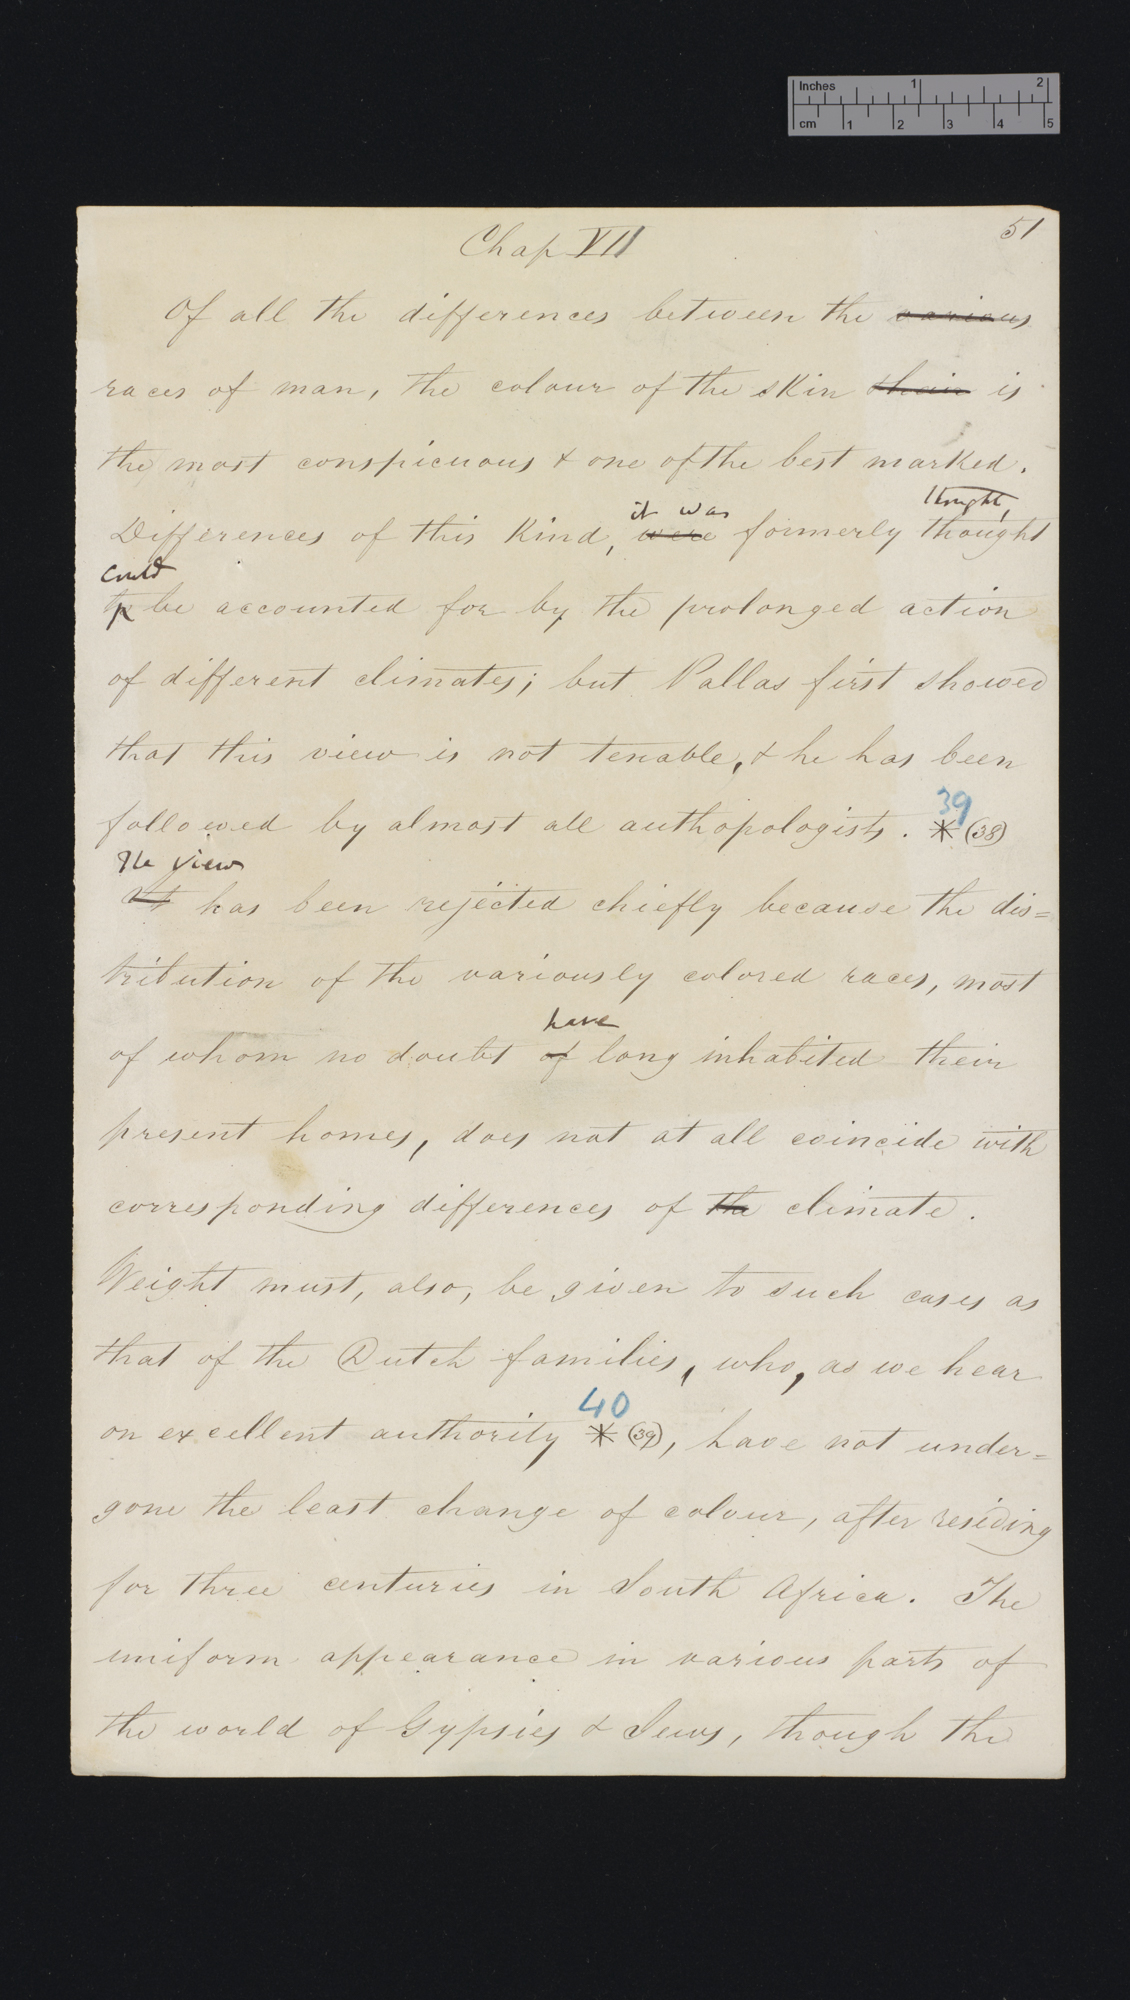 Inches 1 2
cm 1 2 3 4 5
51
Chap VII
Of all the differences between the various
races of man, the colour of the skin their is
the most conspicuous & one of the best marked.
it was thought,
Differences of this kind, were formerly thought
could
to be accounted for by the prolonged action
of different climates; but Pallas first showed
that this view is not tenable, & he has been
39
followed by almost all authopologists. * (38)
The view
It has been rejected chiefly because the dis=
tribution of the variously colored races, most
have
of whom no doubt of long inhabited their
present homes, does not at all coincide with
corresponding differences of the climate.
Weight must, also, be given to such cases as
that of the Dutch families, who, as we hear
40
on excellent authority * (39), have not under=
gone the least change of colour, after residing
for three centuries in South Africa. The
uniform appearance in various parts of
the world of Gypsies & Jews, though the